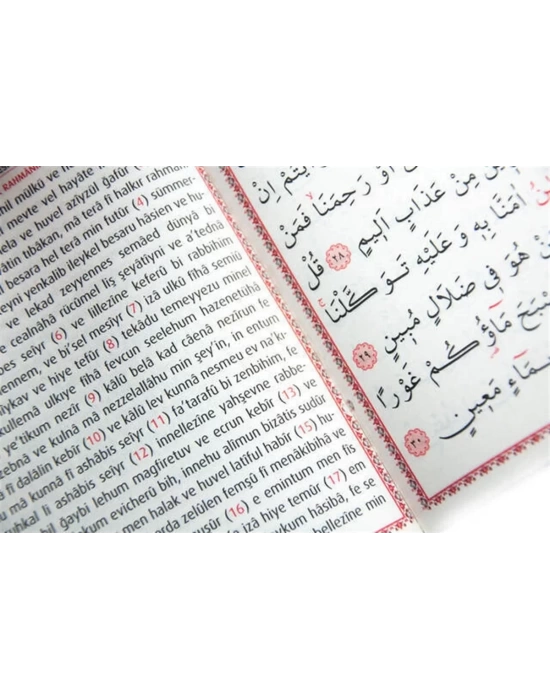 RAHMANİ
mil mülkü ve h
l mevte vel hayâte
ela ve huvel azîyzül gafûr (
vâtin tıbâkan, mâ terâ fî halkır rahmân
l besara hel terâ min futûr (4) sümmer-
eyni yenkalib ileykel besaru hâsien ve hu-
e lekad zeyyennes semâed dünyâ bi
e cealnâhâ rücûmel liş şeyâtîyni ve a'tednâ
bes seîyr (6) ve lillezîne keferû bi rabbihim
hennem, ve bi'sel mesîyr (7) izâ ulkû fîhâ semiû
hîykav ve hiye tefûr (8) tekâdu temeyyezu minel
kullemâ ulkıye fîhâ fevcun seelehum hazenetühâ
e'tikum nezîr (9) kâlû belâ kad câenâ nezîrun fe
zebnâ ve kulnâ mâ nezzelallâhu min şey'in, in entum
â fî dalâlin kebîr (10) ve kâlû lev kunnâ nesmeu ev na'k-
u mâ kunnâ fî ashâbis seîyr (11) fa'tarafû bi zenbihim, fe
uhkal li ashâbis seîyr (12) innellezîne yahşevne rabbe-
bil ğaybi lehum magfiretuv ve ecrun kebîr (13) ve
kum evicherû bih, innehu alîmun bizâtis sudûr
men halak ve huvel latîful habîr (15) hu-
arda zelûlen femşû fî menâkibihâ ve
nuşûr (16) e emintum men fis
e izâ hiye temûr (17) em
aykum hâsibâ, fe se
bellezîne min
ايتم اِنْ
اَوْ رَحِمَنَا فَمَنْ
مِنْ عَذَابٍ اَلِيمٍ ٢٨ قُلْ
اٰمَنَّا بِهِ وَعَلَيْهِ تَوَكَّلْنَا
هُوَ فِي ضَلَالٍ مُبِينٍ ٢٩
صْبَحَ مَاؤُكُمْ غَوْرًا
مَاءٍ مَعِينٍ ٣٠